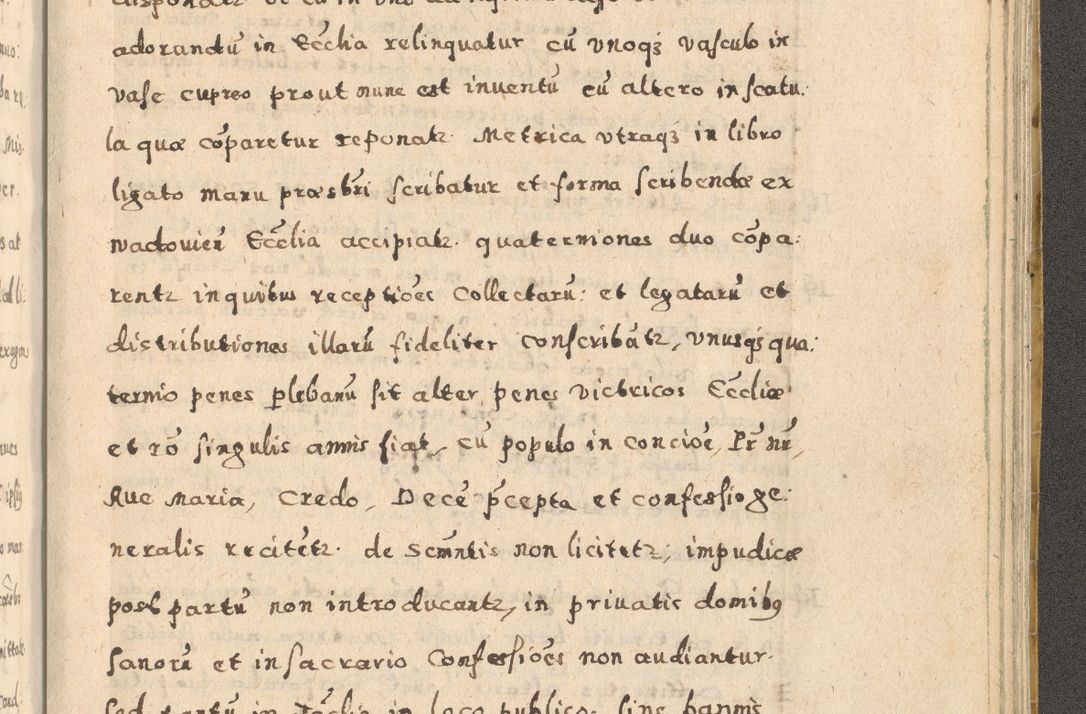 adorandū in Eccłia relinquatur cū vnoqȝ vasculo in
vase cupreo prout nunc est inuentū cū altero in scatu:
la quæ cōparetur reponatꝛ. Metrica vtraqȝ in libro
ligato manu præsbri scribatur et forma scribendæ ex
wadouien̄ Eccłia accipiatꝛ. quaterniones duo cōpa:
rentꝛ in quibus receptiōes Collectarū: et legatarū et
distributiones illarū fideliter conscribātꝛ, vnusqȝ qua:
ternio penes plebanū sit alter penes victricos Eccłiæ
et rō singulis annis fiat, cū populo in concioē, Pr̄ nr̄,
Aue Maria, Credo, Decē pcepta et confessio ge:
neralis recitētꝛ. de Scmntis non licitetꝛ, impudicæ
post partū non introducantꝛ, in priuatis domibꝰ
sanorū et in sacrario Confessiōes non audiantur.
in loco publico. sine bannis